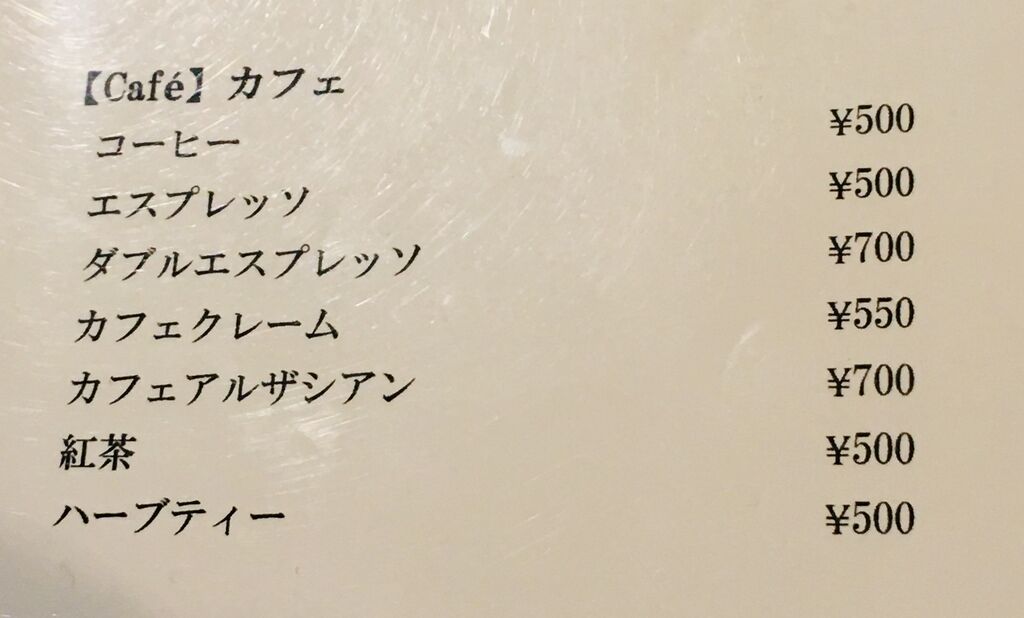 【Café】カフェ
コーヒー ¥500
エスプレッソ ¥500
ダブルエスプレッソ ¥700
カフェクレーム ¥550
カフェアルザシアン ¥700
紅茶 ¥500
ハーブティー ¥500